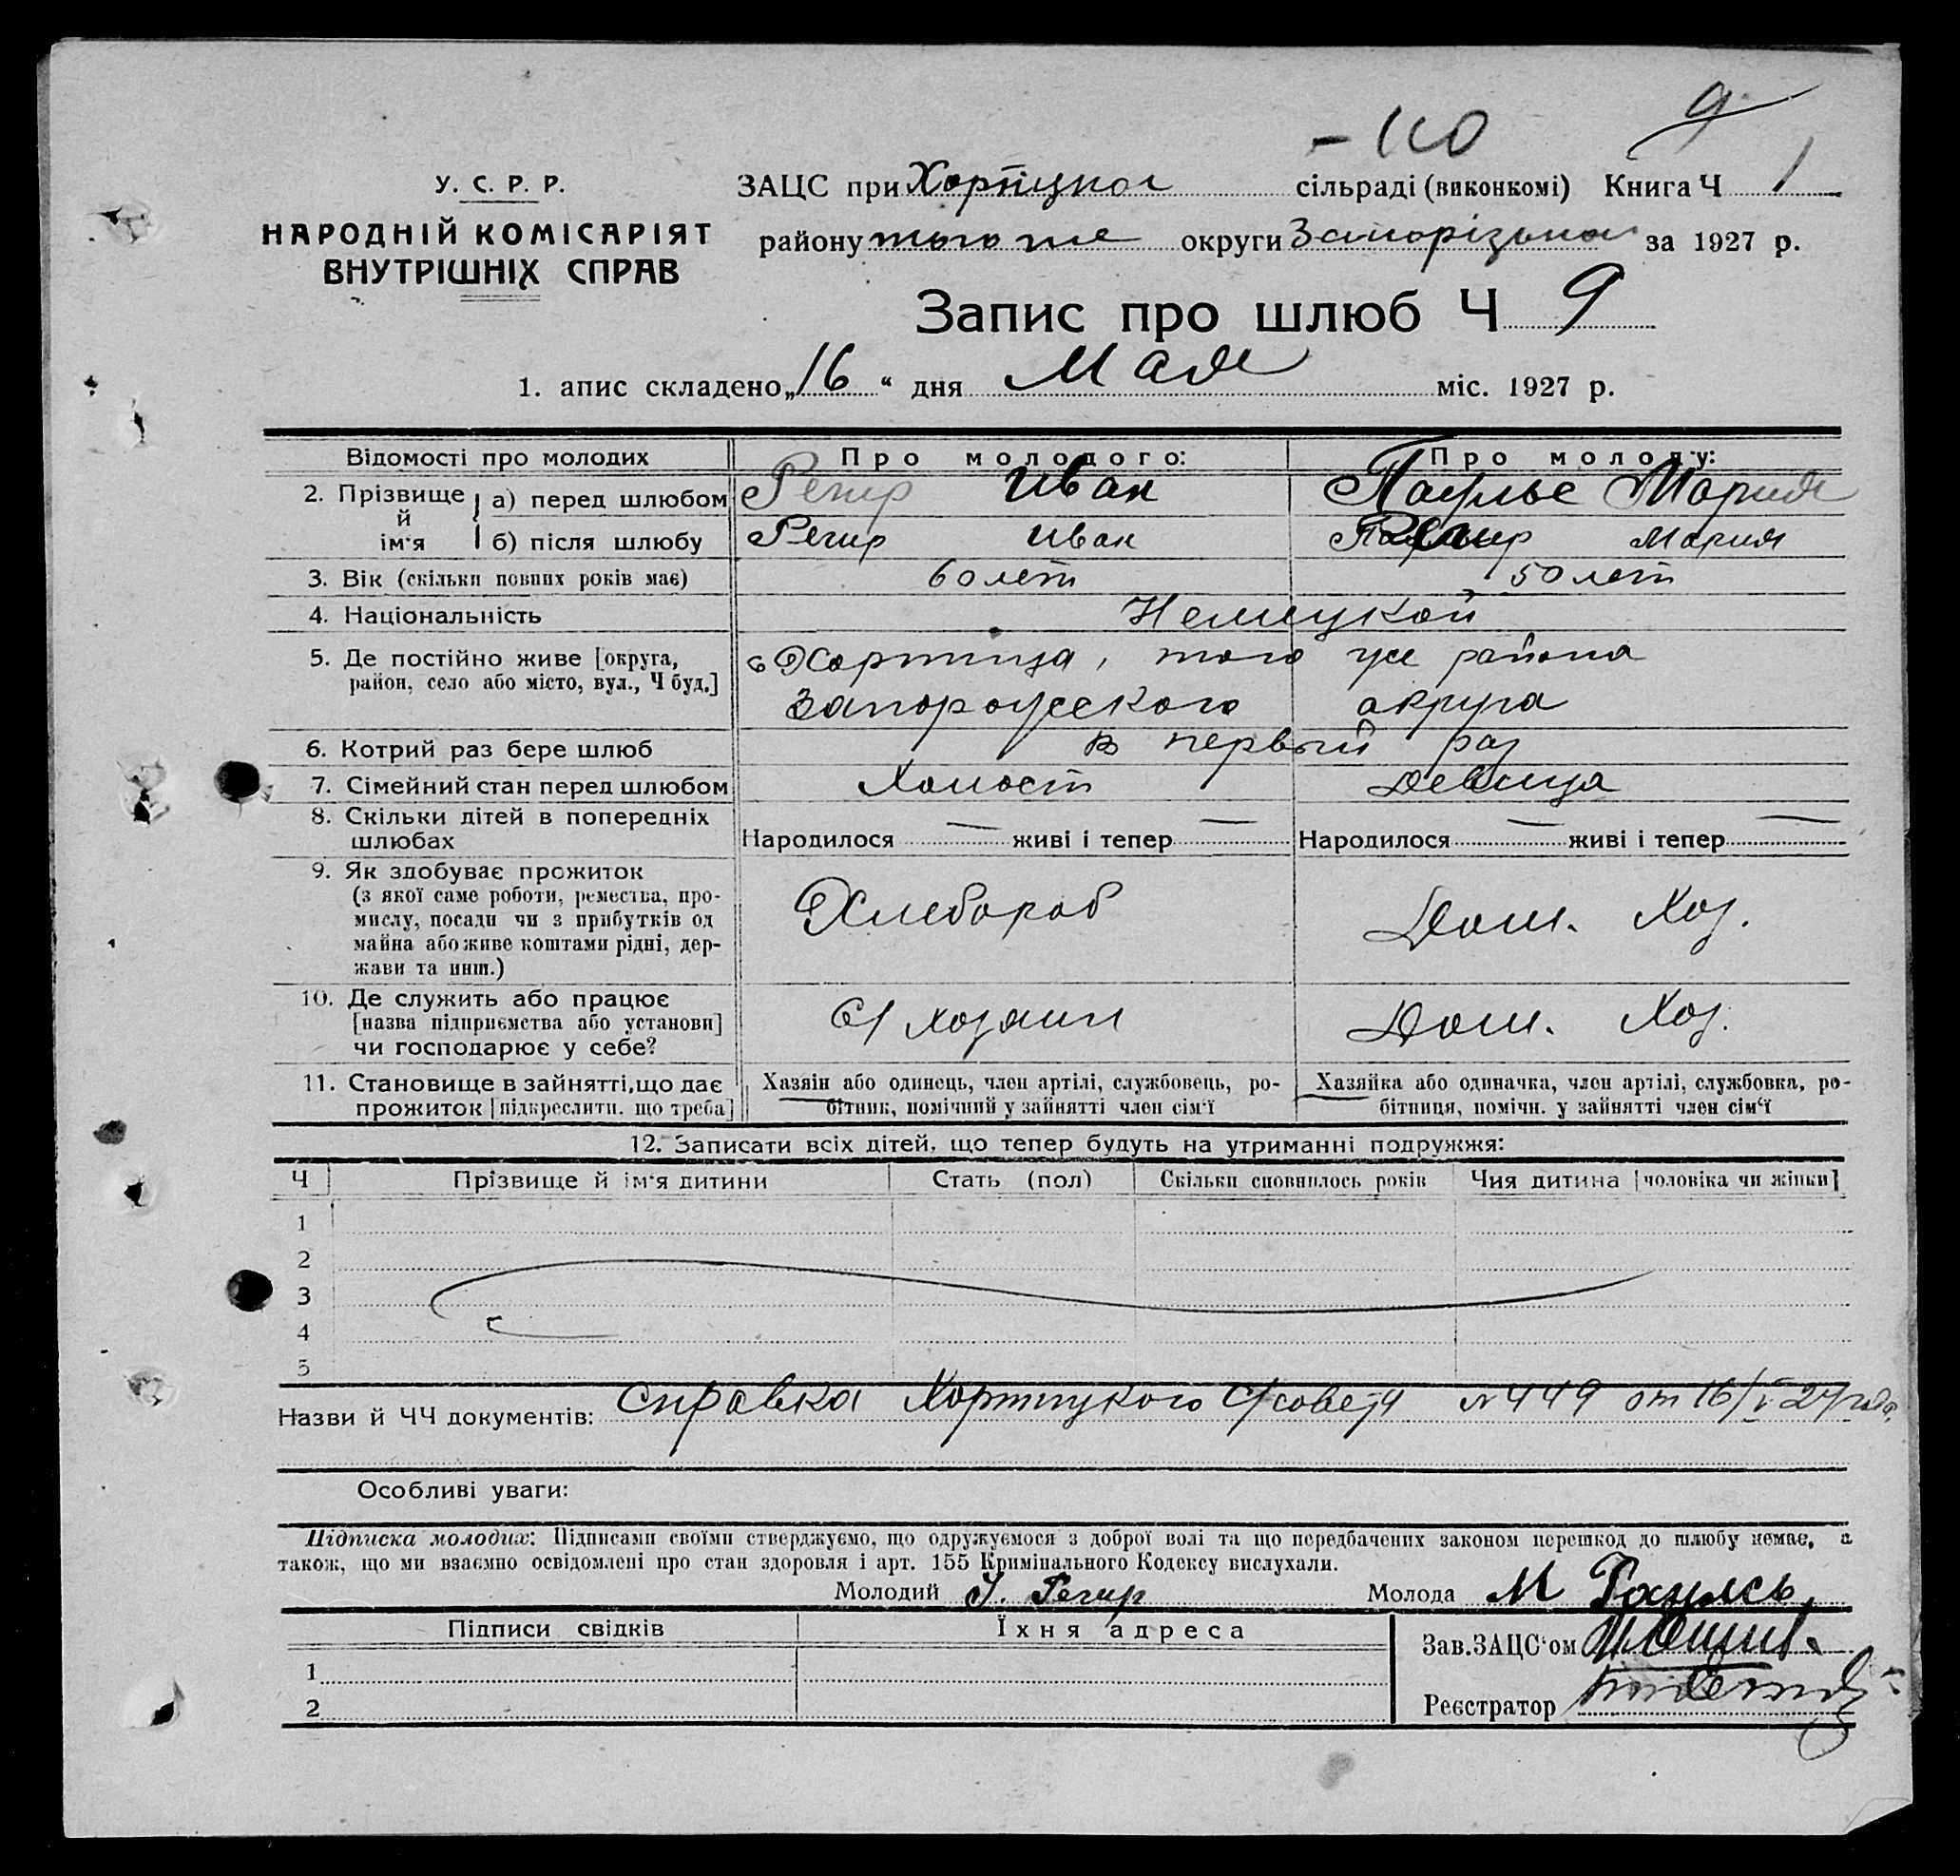 9
У. С. Р. Р.
НАРОДНІЙ КОМІСАРІЯТ
ВНУТРІШНІХ СПРАВ
ЗАЦС при Хортицкой сільраді (виконкомі) Книга Ч 1
району того же округи Запорізької за 1927 р.
Запис про шлюб Ч 9
1. апис складено „16“ дня Мая міс. 1927 р.
Відомості про молодих Про молодого: Про молоду:
2. Прізвище й ім'я а) перед шлюбом Регир Иван Паульс Мария
б) після шлюбу Регир Иван Регир Мария
3. Вік (скільки повних років має) 60 лет 50 лет
4. Національність Немецкой
5. Де постійно живе [округа, район, село або місто, вул., Ч буд.] с Хортица, того же района
Запорожского округа
6. Котрий раз бере шлюб в первый раз
7. Сімейний стан перед шлюбом Холост Девица
8. Скільки дітей в попередніх шлюбах Народилося — живі і тепер — Народилося — живі і тепер —
9. Як здобуває прожиток
(з якої саме роботи, ремества, про-
мислу, посади чи з прибутків од
майна або живе коштами рідні, дер-
жави та инш.) Хлебороб Дом. Хоз.
10. Де служить або працює
[назва підприємства або установи]
чи господарює у себе? С/хозяин Дом. Хоз.
11. Становище в зайнятті, що дає
прожиток [підкреслити. що треба]
Хазяїн або одинець, член артілі, службовець, ро-
бітник, помічний у зайнятті член сім'ї
Хазяйка або одиначка, член артілі, службовка, ро-
бітниця, помічн. у зайнятті член сім'ї
12. Записати всіх дітей, що тепер будуть на утриманні подружжя:
Ч Прізвище й ім'я дитини Стать (пол) Скільки сповнилось років Чия дитина [чоловіка чи жінки]
1
2
3
4
5
Назви й ЧЧ документів: Справка Хортицкого С/совета № 449 от 16/V 27 года
Особливі уваги:
Підписка молодих: Підписами своїми стверджуємо, що одружуємося з доброї волі та що передбачених законом перешкод до шлюбу немає, а
також, що ми взаємно освідомлені про стан здоровля і арт. 155 Кримінального Кодексу вислухали.
Молодий И. Регир Молода М Паульсъ
Підписи свідків Їхня адреса
Зав.ЗАЦС'ом
1
Реєстратор
2